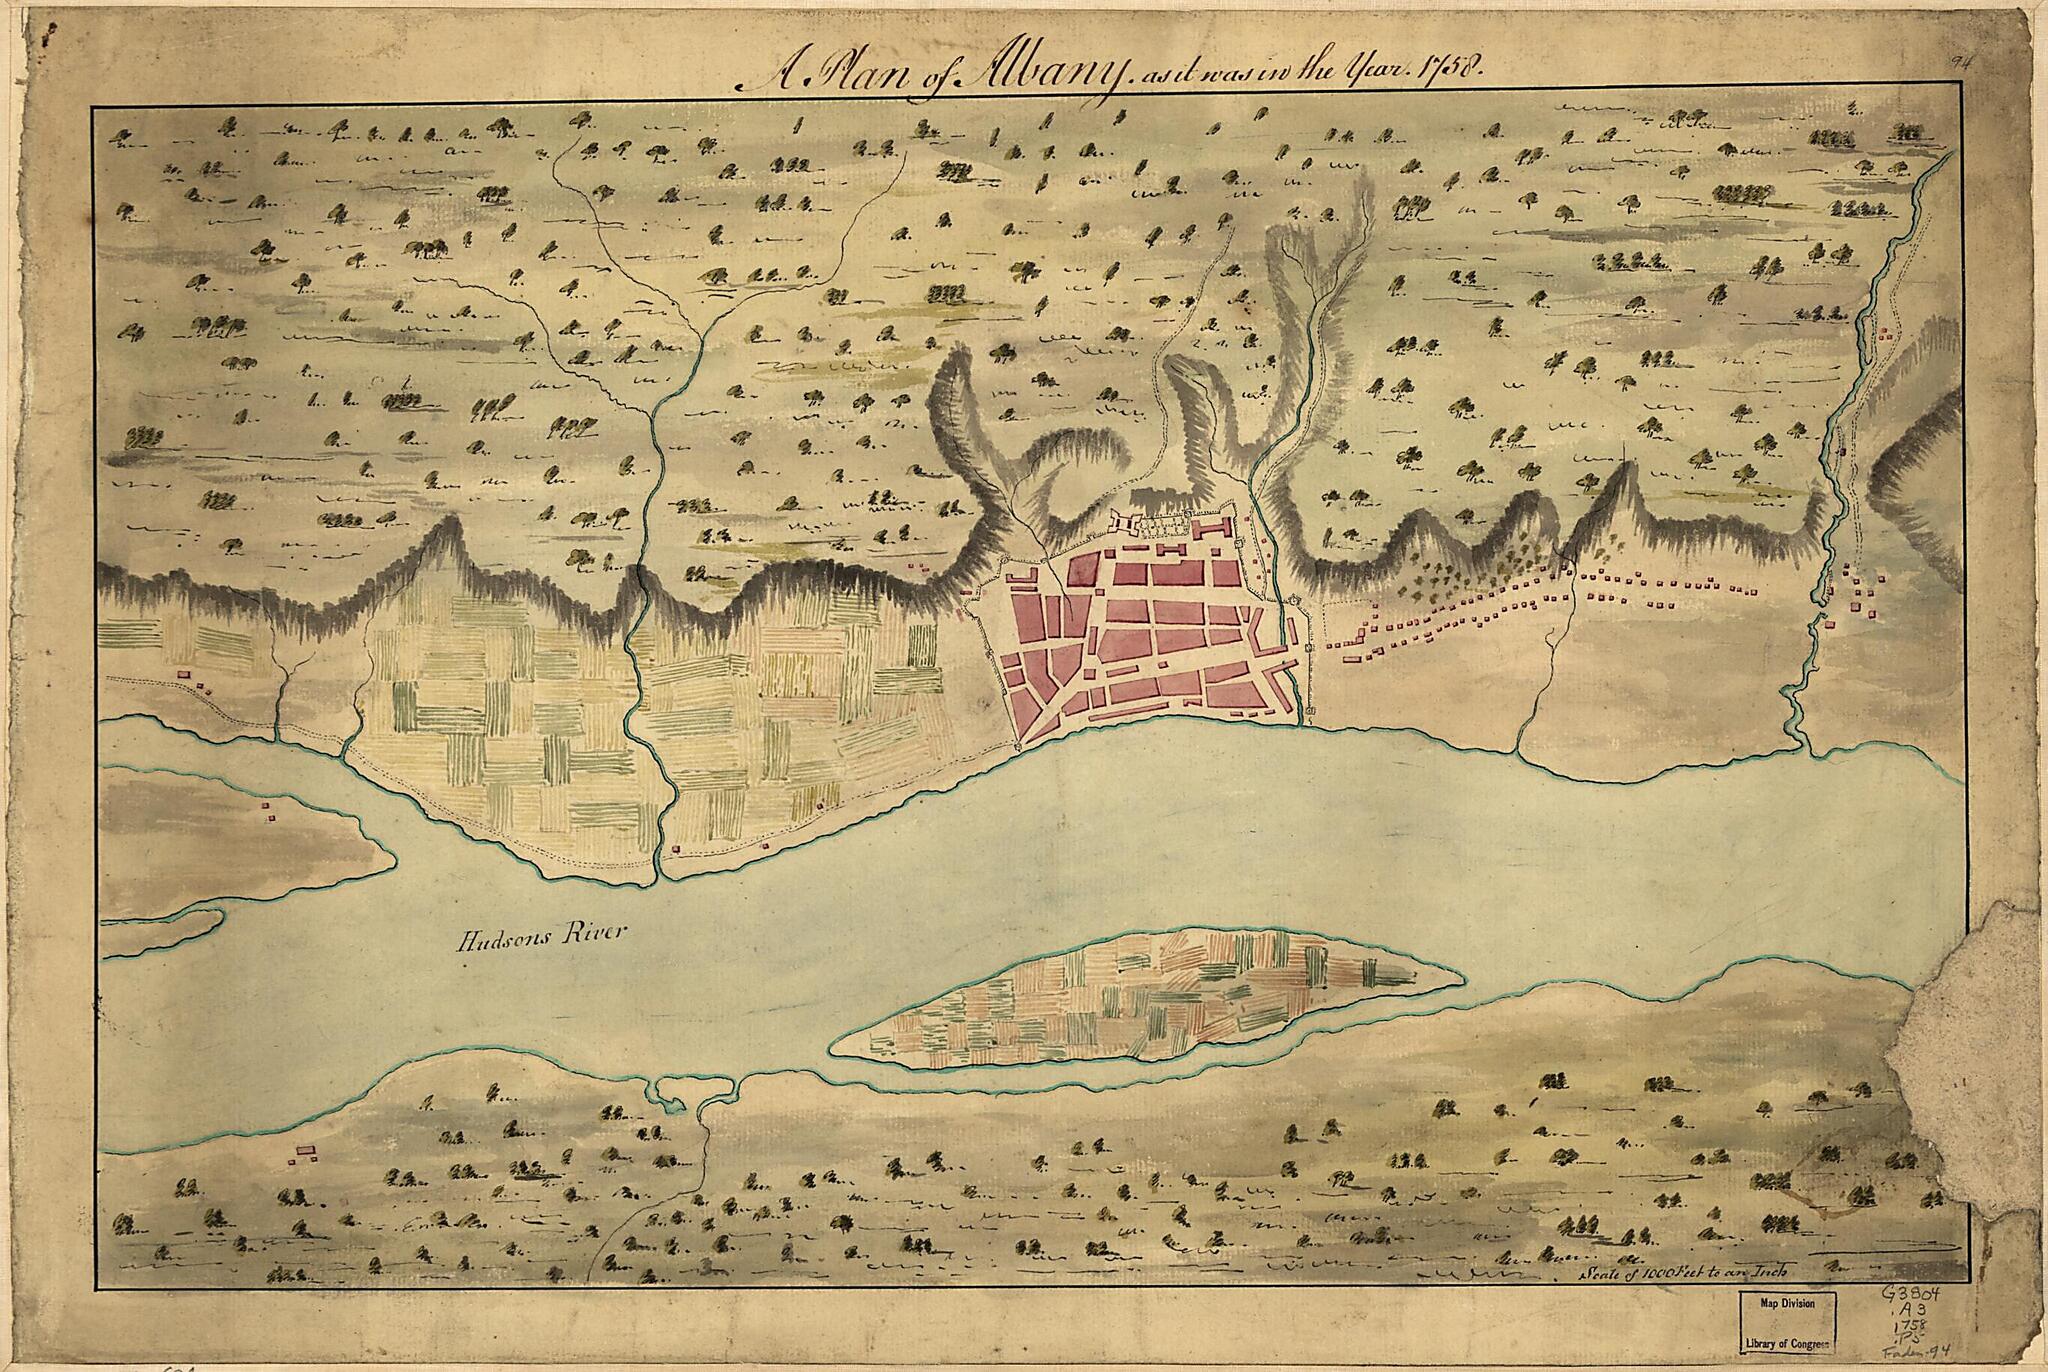 A Plan of Albany. as it was in the Year. 1758.
94
Hudsons River
Scale of 1000 Feet to an Inch
Map Division
Library of Congress
G3804
.A3
1758
.P5
Faden 94